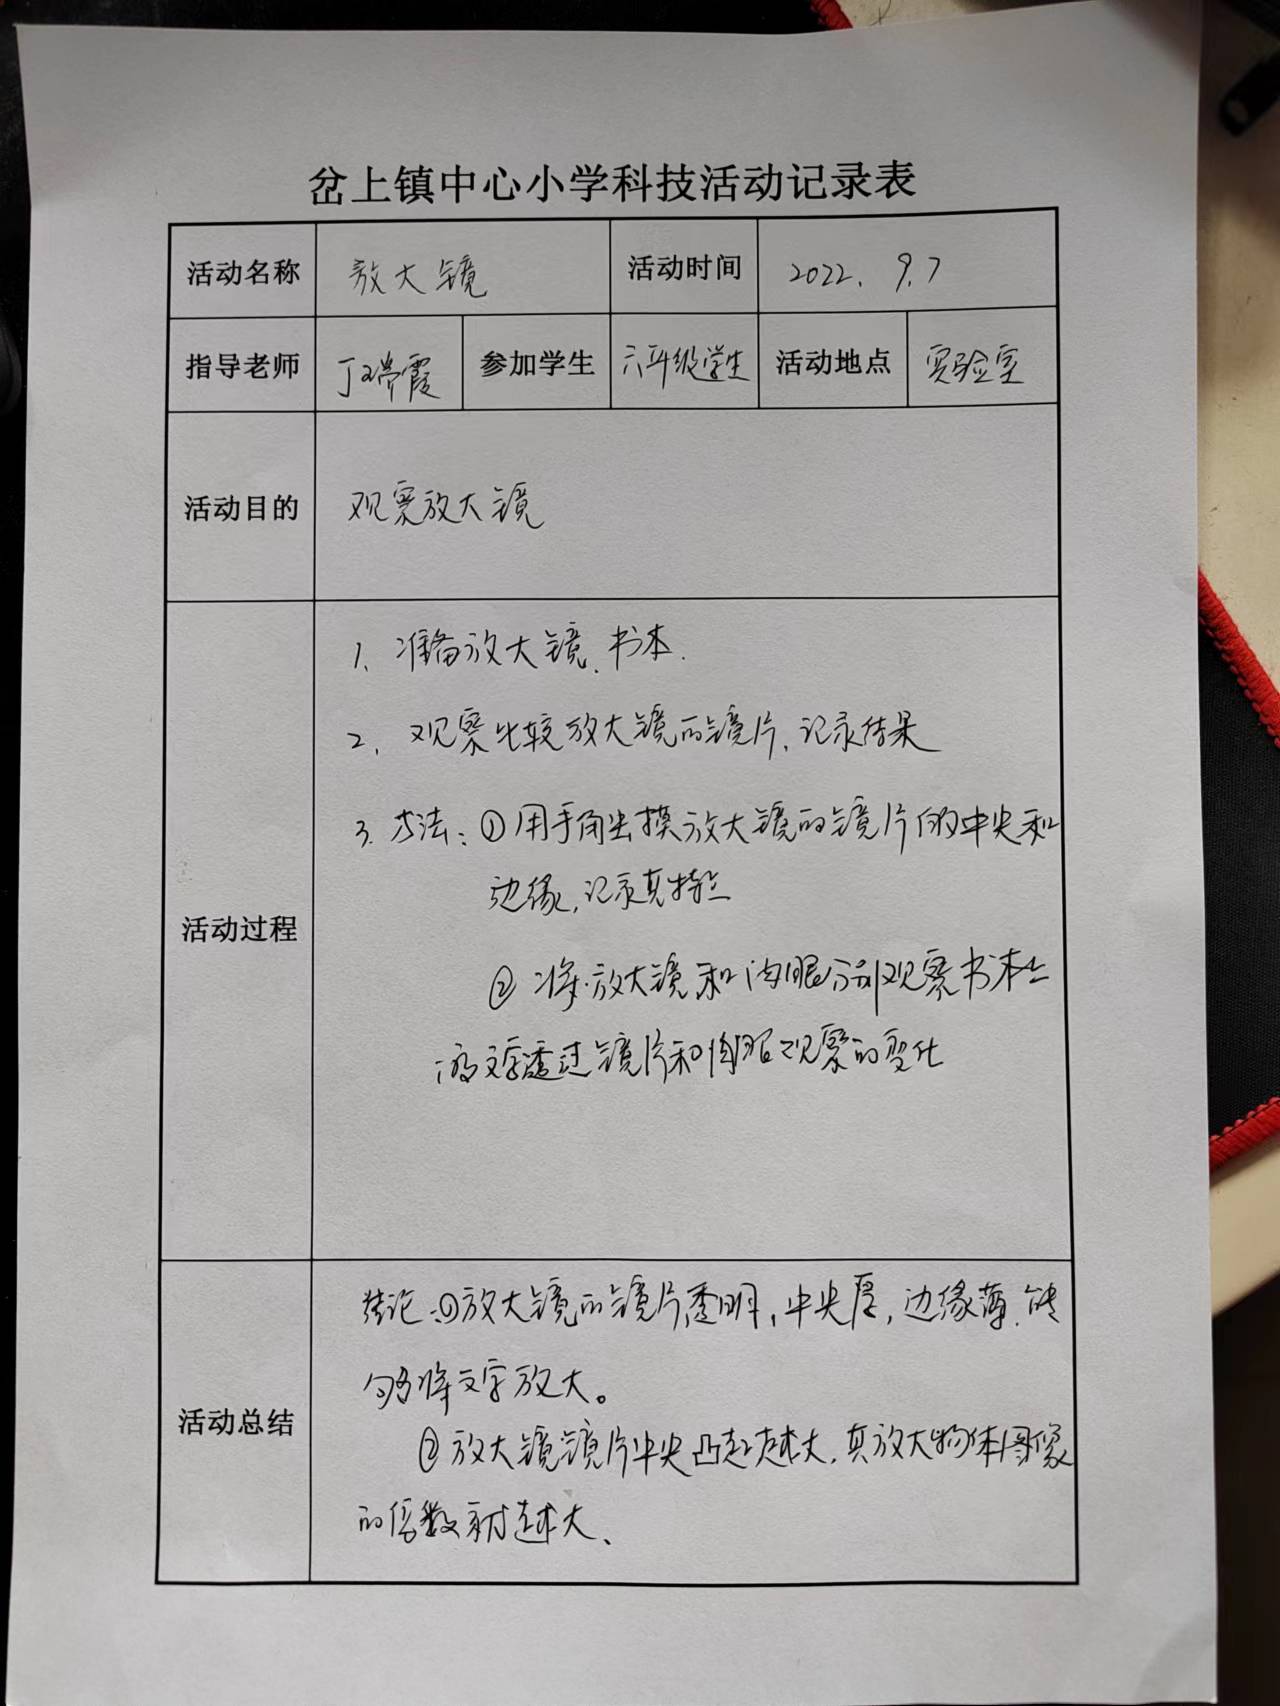 岔上镇中心小学科技活动记录表
活动名称 放大镜 活动时间 2022. 9.7
指导老师 丁瑞霞 参加学生 六年级学生 活动地点 实验室
活动目的 观察放大镜
活动过程
1、准备放大镜、书本.
2、观察比较放大镜的镜片,记录结果
3、方法:①用手触摸放大镜的镜片的中央和
边缘,记录其特点
②将放大镜和肉眼分别观察书本上
文字透过镜片和肉眼观察的变化
活动总结
结论:①放大镜的镜片透明,中央厚,边缘薄,能
够将文字放大。
②放大镜镜片中央凸起越大,其放大物体图像
的倍数就越大、